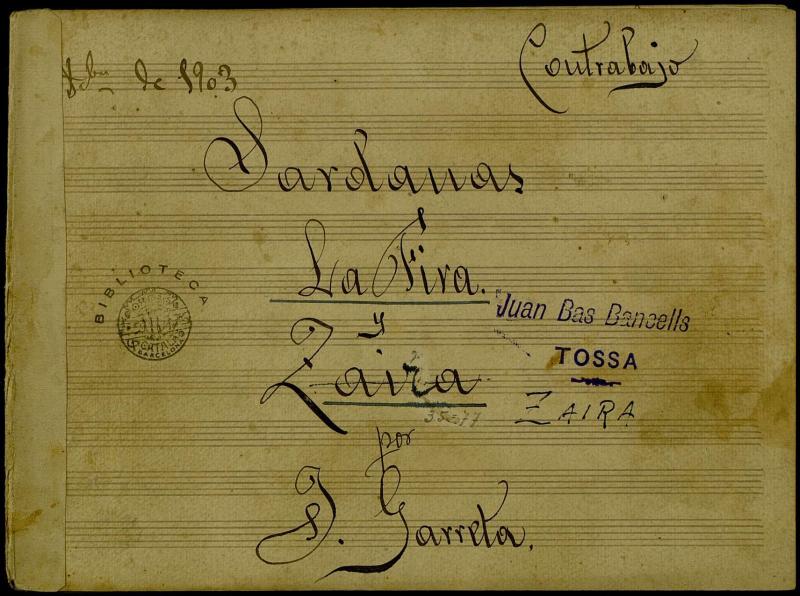 de 1903
Contrabajo
Sardanas
La Fira.
y
Zaira
por
J. Garreta.
BIBLIOTECA
BARCELONA
Juan Bas Bancells
TOSSA
ZAIRA